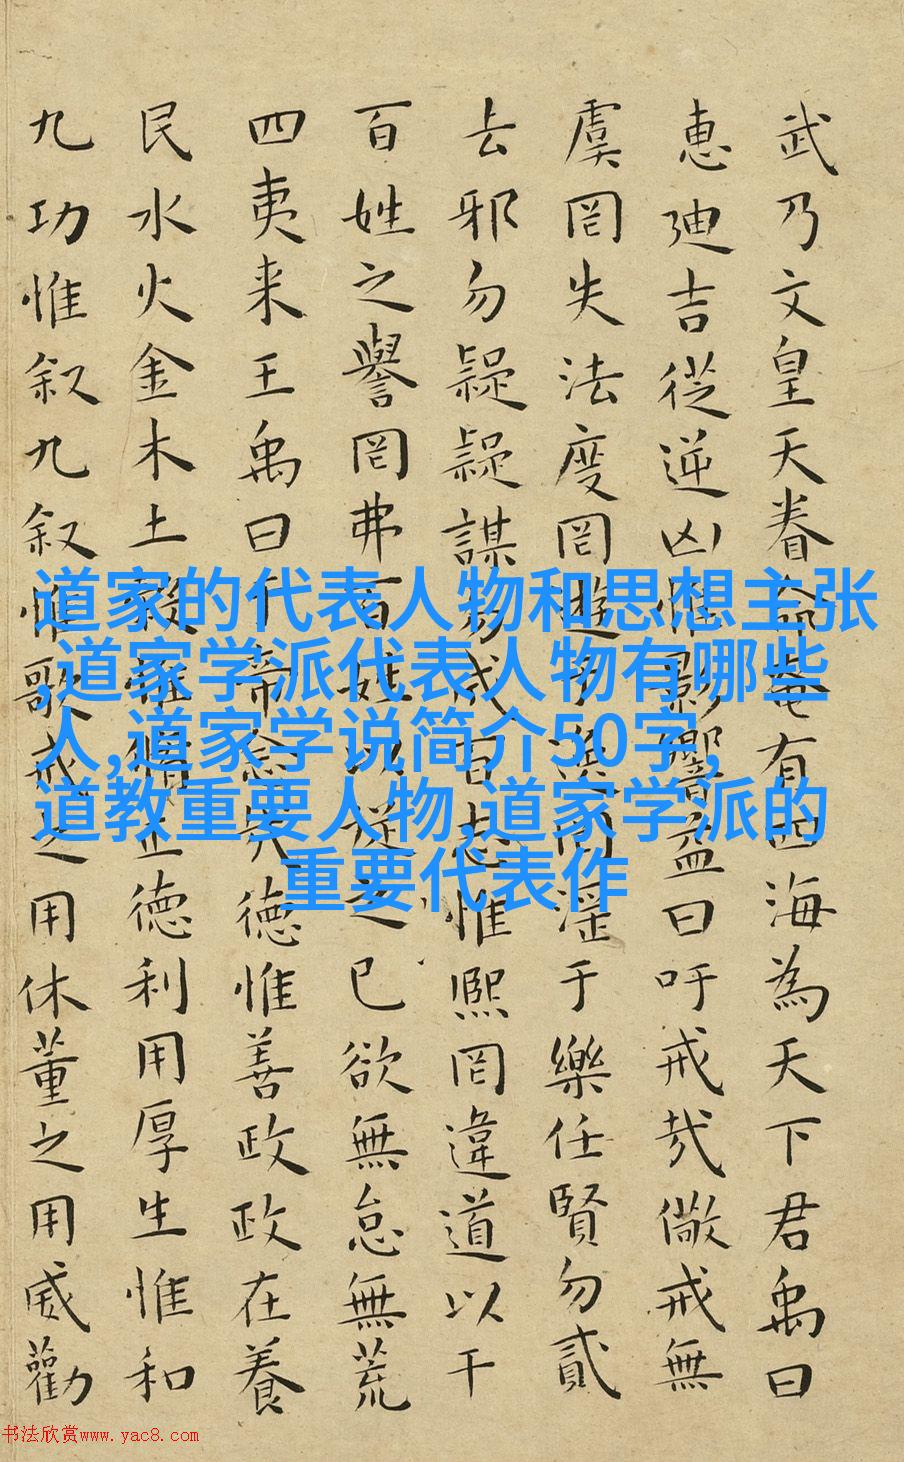 武乃文皇天眷命奄有四海為天下君禹曰
惠迪吉從逆凶惟影響益曰吁戒哉儆戒無
虞罔失法度罔遊于逸罔淫于樂任賢勿貳
去邪勿疑疑謀勿成百志惟熙罔違道以干
百姓之譽罔弗百姓以從之已欲無怠無荒
四夷来王禹曰於帝念哉德惟善政政在養
民水火金木土穀惟脩正德利用厚生惟和
九功惟叙九叙惟歌戒之用休董之用威勸
道家的代表人物和思想主张
,道家学派代表人物有哪些
人,道家学说简介50字,
道教重要人物,道家学派的
重要代表作
书法欣赏www.yac8.com